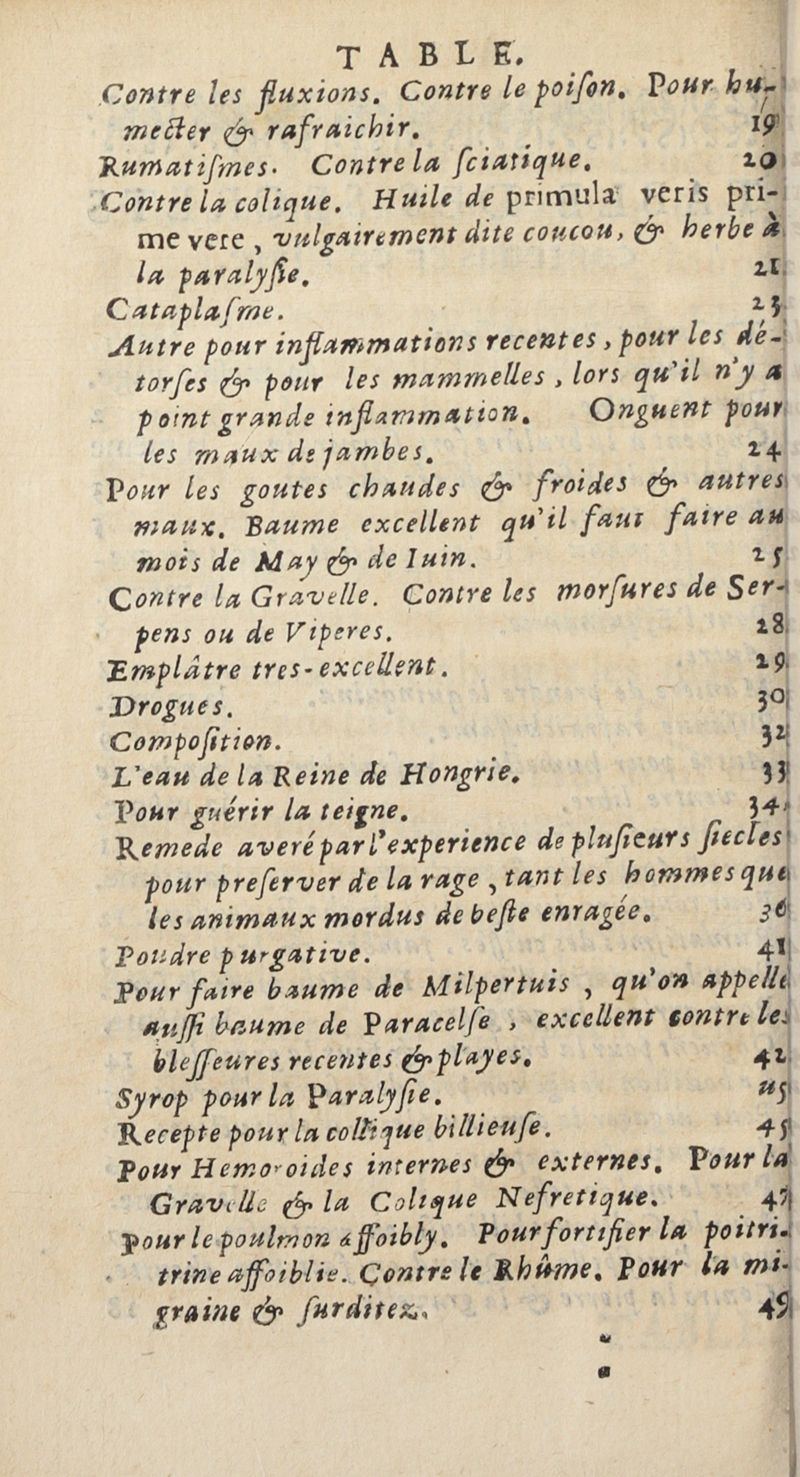 TABLE.
Contre les fluxions. Contre le poiſon. Pour hu-
mecter & rafraichir. 19
Rumatiſmes. Contre la ſciatique. 20
Contre la colique. Huile de primula veris pri-
me vere, vulgairement dite coucou, & herbe à
la paralyſie. 21
Cataplaſme. 23
Autre pour inflammations recentes, pour les dé-
torſes & pour les mammelles, lors qu'il n'y a
point grande inflammation. Onguent pour
les maux de jambes. 24
Pour les goutes chaudes & froides & autres
maux. Baume excellent qu'il faut faire au
mois de May & de Iuin. 25
Contre la Gravelle. Contre les morſures de Ser-
pens ou de Viperes. 28
Emplâtre tres-excellent. 29
Drogues. 30
Compoſition. 32
L'eau de la Reine de Hongrie. 33
Pour guérir la teigne. 34
Remede averé par l'experience de pluſieurs ſiecles
pour preſerver de la rage, tant les hommes que
les animaux mordus de beſte enragée. 36
Poudre purgative. 41
Pour faire baume de Milpertuis, qu'on appelle
auſſi baume de Paracelſe, excellent contre les
bleſſeures recentes & playes. 42
Syrop pour la Paralyſie. u5
Recepte pour la collique billieuſe. 45
Pour Hemoroides internes & externes. Pour la
Gravelle & la Colique Nefretique. 47
pour le poulmon affoibly. Pour fortifier la poitri-
trine affoiblie. Contre le Rhûme. Pour la mi-
graine & ſurditez. 49